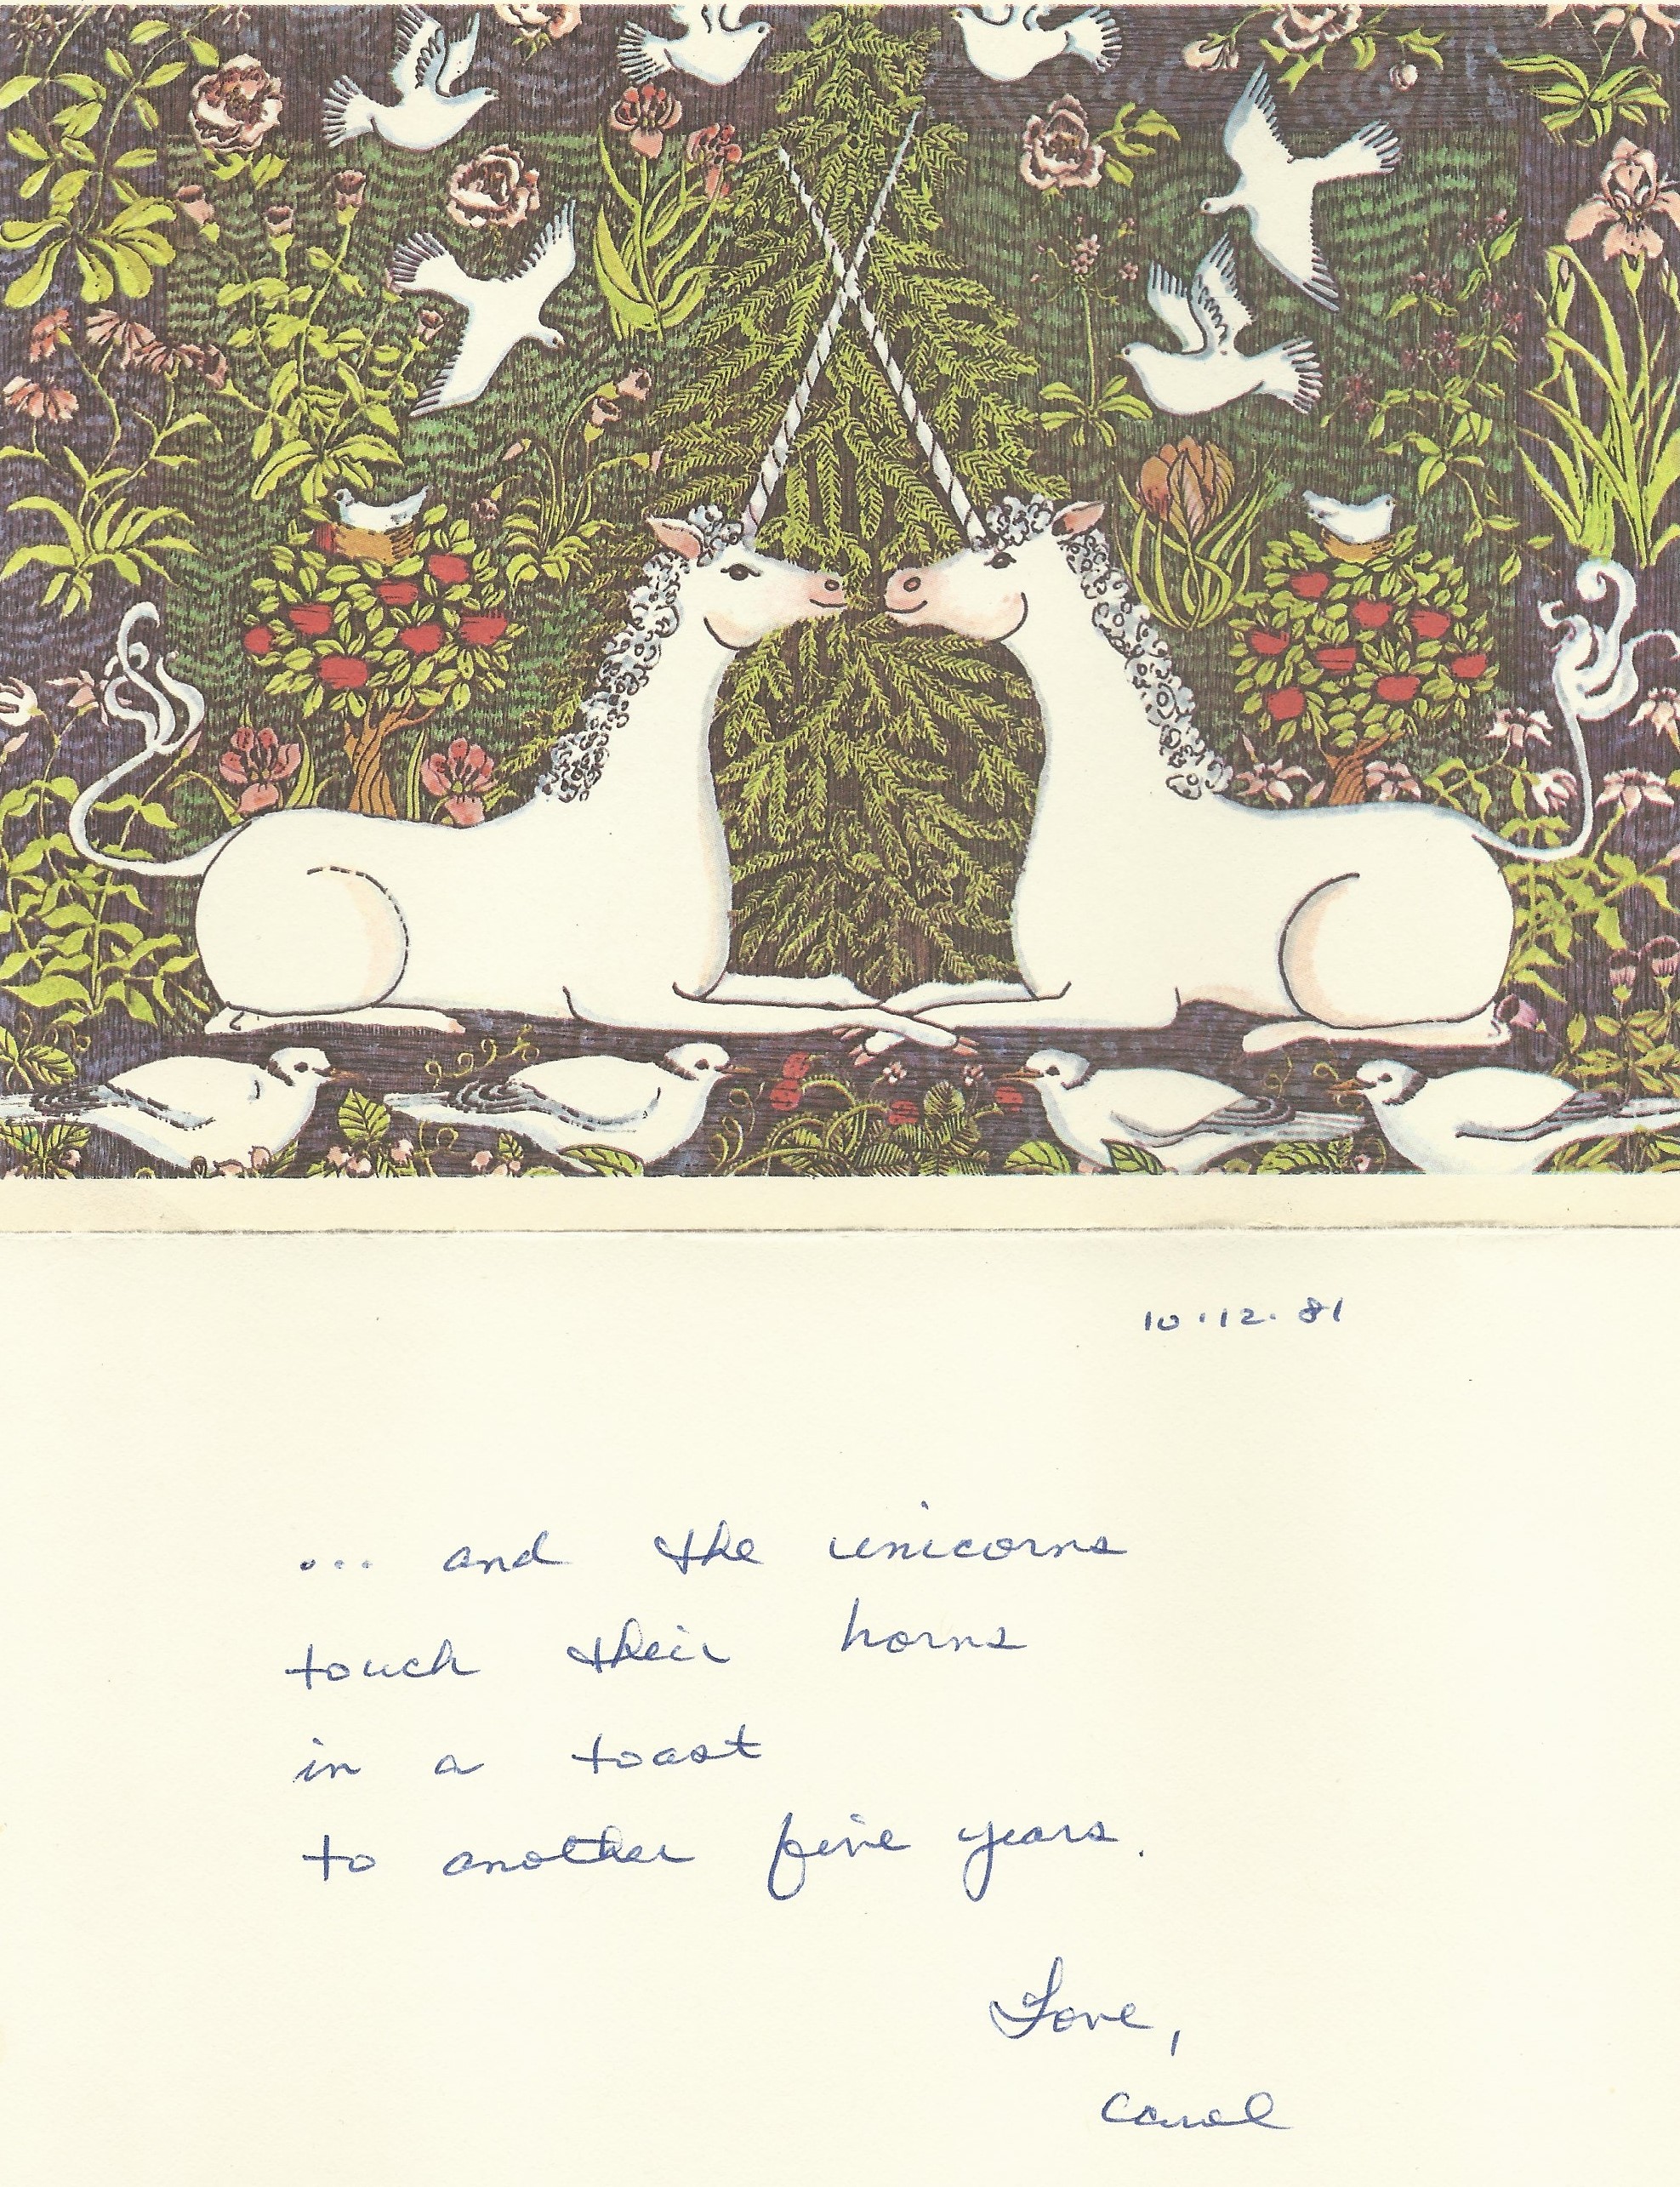 10.12.81
... and the unicorns
touch their horns
in a toast
to another five years.
Love,
Carol